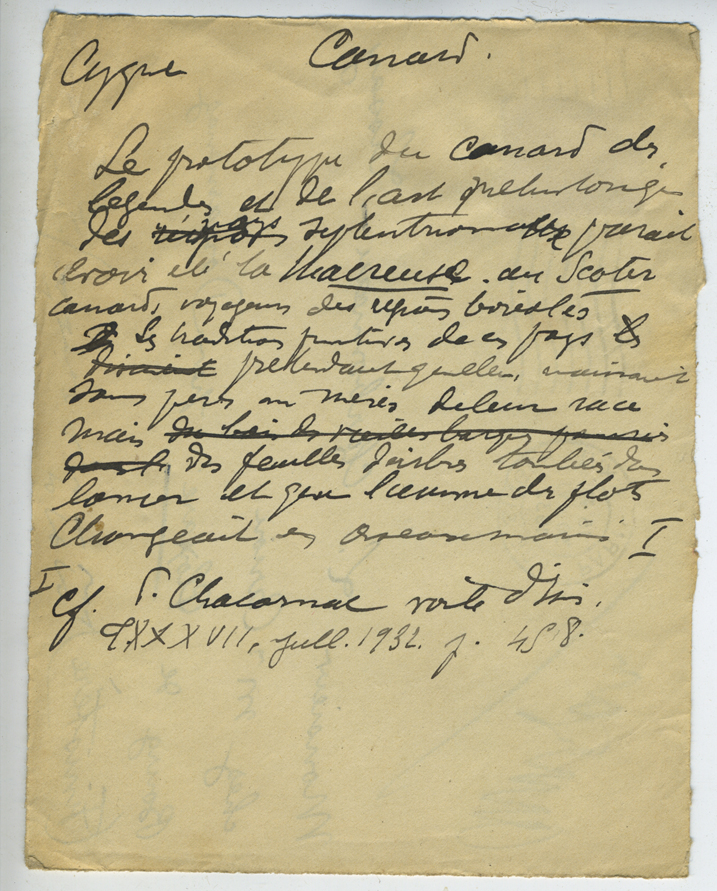 Cygne Canard.
Le prototype du canard des
legendes et de l'art prehistorique
des régions septentrionales parait
avoir été la Macreuse. ou Scoter
canard, voyageur des régions boréales
Les traditions primitives de ces pays les
disaient prétendant qu'elles, naissaient
sans peres ou meres de leur race
mais du bois de vieilles barges pourries
des feuilles d'arbres tombées dans
la mer et que l'ecume des flots
Changeait en oiseaux marins I
I cf. P. Chacornac voile d'Isis,
TXXXVII, juill. 1932. p. 458.